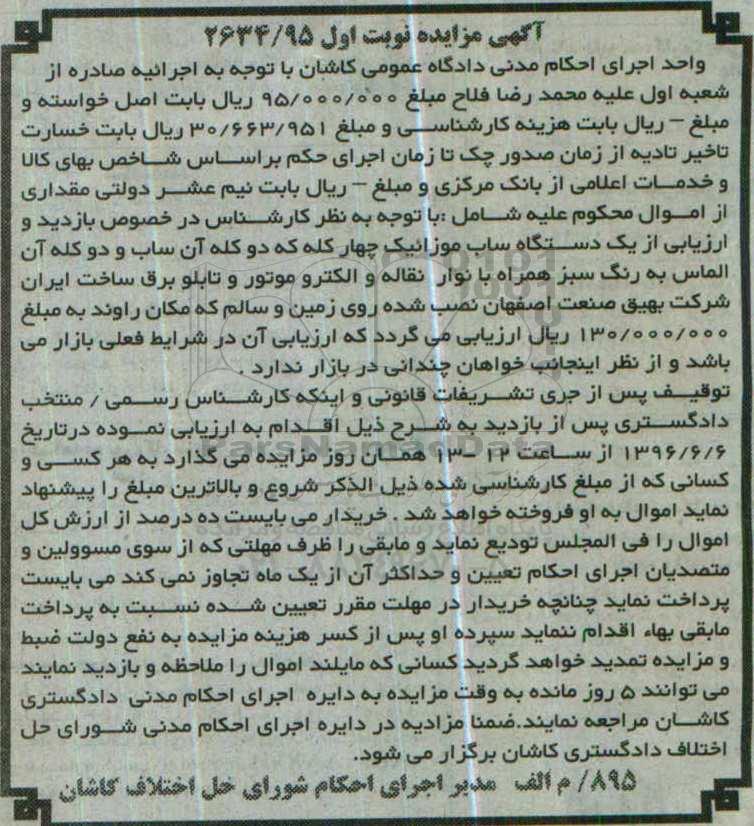 آگهی مزایده نوبت اول ۲۶۳۴/۹۵
واحد اجرای احکام مدنی دادگاه عمومی کاشان با توجه به اجرائیه صادره از
شعبه اول علیه محمد رضا فلاح مبلغ ۹۵/۰۰۰/۰۰۰ ریال بابت اصل خواسته و
مبلغ – ریال بابت هزینه کارشناسی و مبلغ ۳۰/۶۶۳/۹۵۱ ریال بابت خسارت
تاخیر تادیه از زمان صدور چک تا زمان اجرای حکم براساس شاخص بهای کالا
و خدمات اعلامی از بانک مرکزی و مبلغ – ریال بابت نیم عشر دولتی مقداری
از اموال محکوم علیه شامل :با توجه به نظر کارشناس در خصوص بازدید و
ارزیابی از یک دستگاه ساب موزائیک چهار کله که دو کله آن ساب و دو کله آن
الماس به رنگ سبز همراه با نوار نقاله و الکترو موتور و تابلو برق ساخت ایران
شرکت بهیق صنعت اصفهان نصب شده روی زمین و سالم که مکان راوند به مبلغ
۱۳۰/۰۰۰/۰۰۰ ریال ارزیابی می گردد که ارزیابی آن در شرایط فعلی بازار می
باشد و از نظر اینجانب خواهان چندانی در بازار ندارد .
توقیف پس از جری تشریفات قانونی و اینکه کارشناس رسمی / منتخب
دادگستری پس از بازدید به شرح ذیل اقدام به ارزیابی نموده درتاریخ
۱۳۹۶/۶/۶ از ساعت ۱۲ -۱۳ همان روز مزایده می گذارد به هر کسی و
کسانی که از مبلغ کارشناسی شده ذیل الذکر شروع و بالاترین مبلغ را پیشنهاد
نماید اموال به او فروخته خواهد شد . خریدار می بایست ده درصد از ارزش کل
اموال را فی المجلس تودیع نماید و مابقی را ظرف مهلتی که از سوی مسوولین و
متصدیان اجرای احکام تعیین و حداکثر آن از یک ماه تجاوز نمی کند می بایست
پرداخت نماید چنانچه خریدار در مهلت مقرر تعیین شده نسبت به پرداخت
مابقی بهاء اقدام ننماید سپرده او پس از کسر هزینه مزایده به نفع دولت ضبط
و مزایده تمدید خواهد گردید کسانی که مایلند اموال را ملاحظه و بازدید نمایند
می توانند ۵ روز مانده به وقت مزایده به دایره اجرای احکام مدنی دادگستری
کاشان مراجعه نمایند.ضمنا مزادیه در دایره اجرای احکام مدنی شورای حل
اختلاف دادگستری کاشان برگزار می شود.
۸۹۵/ م الف مدیر اجرای احکام شورای حل اختلاف کاشان
ParsNamadData